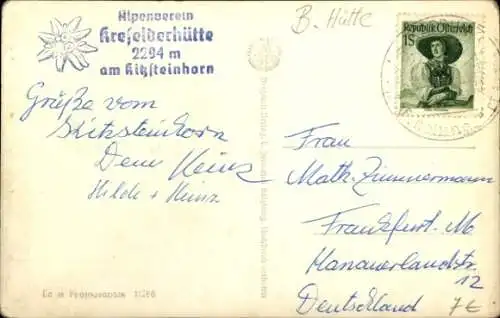 Alpenverein
Krefelderhütte
2294 m
am Kitzsteinhorn
B. Hütte
Republik Österreich
1S
Grüße vom
Kitzsteinhorn
Dein Heinz
Hilde + Heinz
Frau
Math. Zimmermann
Frankfurt. M
Hanauerlandstr.
12
Deutschland
7€